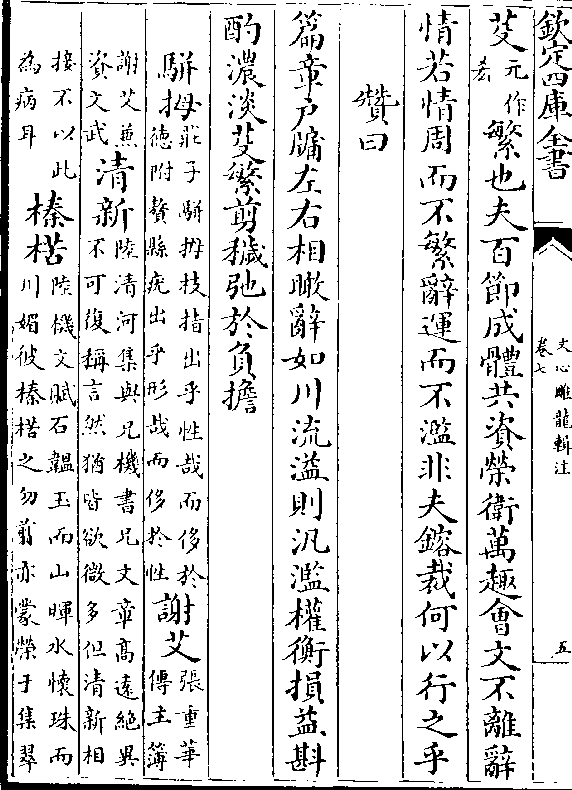 欽定四庫全書
文心雕龍輯注
卷七
五
芟元作繁也夫百節成體共資榮衛萬趣會文不離辭
情若情周而不繁辭運而不濫非夫鎔裁何以行之乎
贊曰
篇章戶牖左右相瞰辭如川流溢則汎濫權衡損益斟
酌濃淡芟繁剪穢弛於負擔
駢拇莊子駢拇枝指出乎性哉而侈於德附贅縣疣出乎形哉而侈於性謝艾張重華傳主簿
謝艾兼資文武清新陸清河集與兄機書兄文章高遠絕異不可復稱言然猶皆欲微多但清新相
接不以此為病耳榛楛陸機文賦石韞玉而山暉水懷珠而川媚彼榛楛之勿翦亦蒙榮于集翠